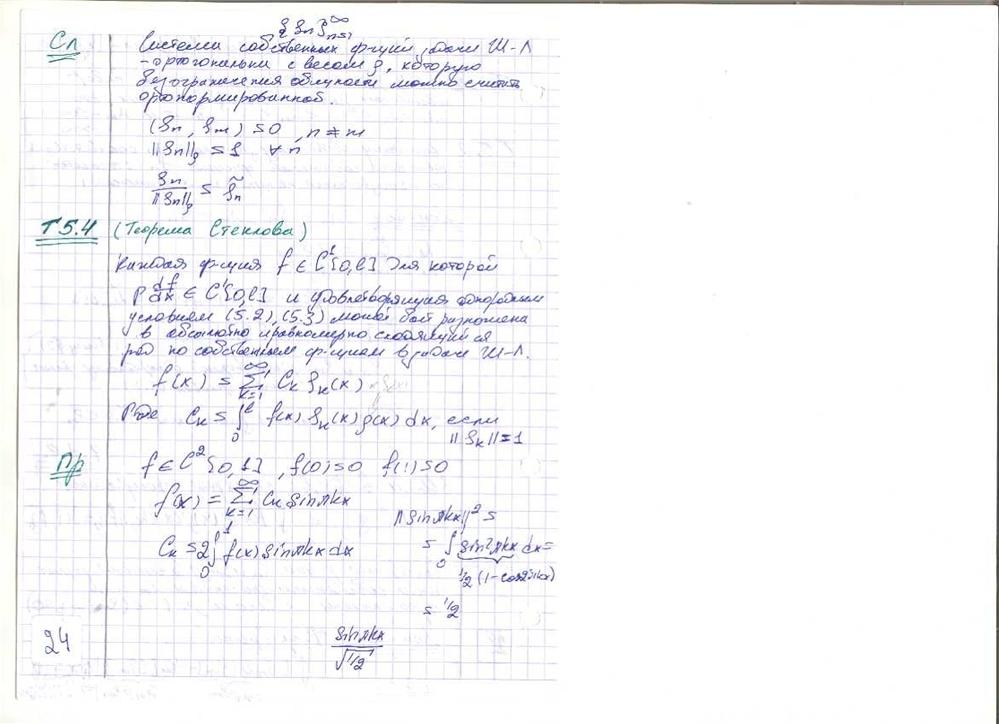 { yn }∞ n=1
Сл Система собственных ф-ций задачи Ш-Л
- ортогональна с весом ρ, которую
без ограничения общности можно считать
ортонормированной.
(yn, ym) = 0 , n ≠ m
||yn||ρ = 1 ∀ n
yn / ||yn||ρ = ỹn
Т 5.4 (Теорема Стеклова)
Каждая ф-ция f ∈ C¹[0,l] для которой
p df/dx ∈ C¹[0,l] и удовлетворяющая однородным
условиям (5.2), (5.3) может быть разложена
в абсолютно и равномерно сходящийся
ряд по собственным ф-циям задачи Ш-Л.
f(x) = ∞ Σ k=1 Ck yk(x)
Где Ck = ∫₀ˡ f(x) yk(x) ρ(x) dx, если
||yk|| = 1
Пр f ∈ C²[0,1] , f(0)=0 f(1)=0
f(x) = ∞ Σ k=1 Ck sinπkx
||sinπkx||² =
Ck = 2∫₀¹ f(x) sinπkx dx
= ∫₀¹ sin²πkx dx =
1/2 (1-cos2πkx)
= 1/2
sinπkx / √1/2
24